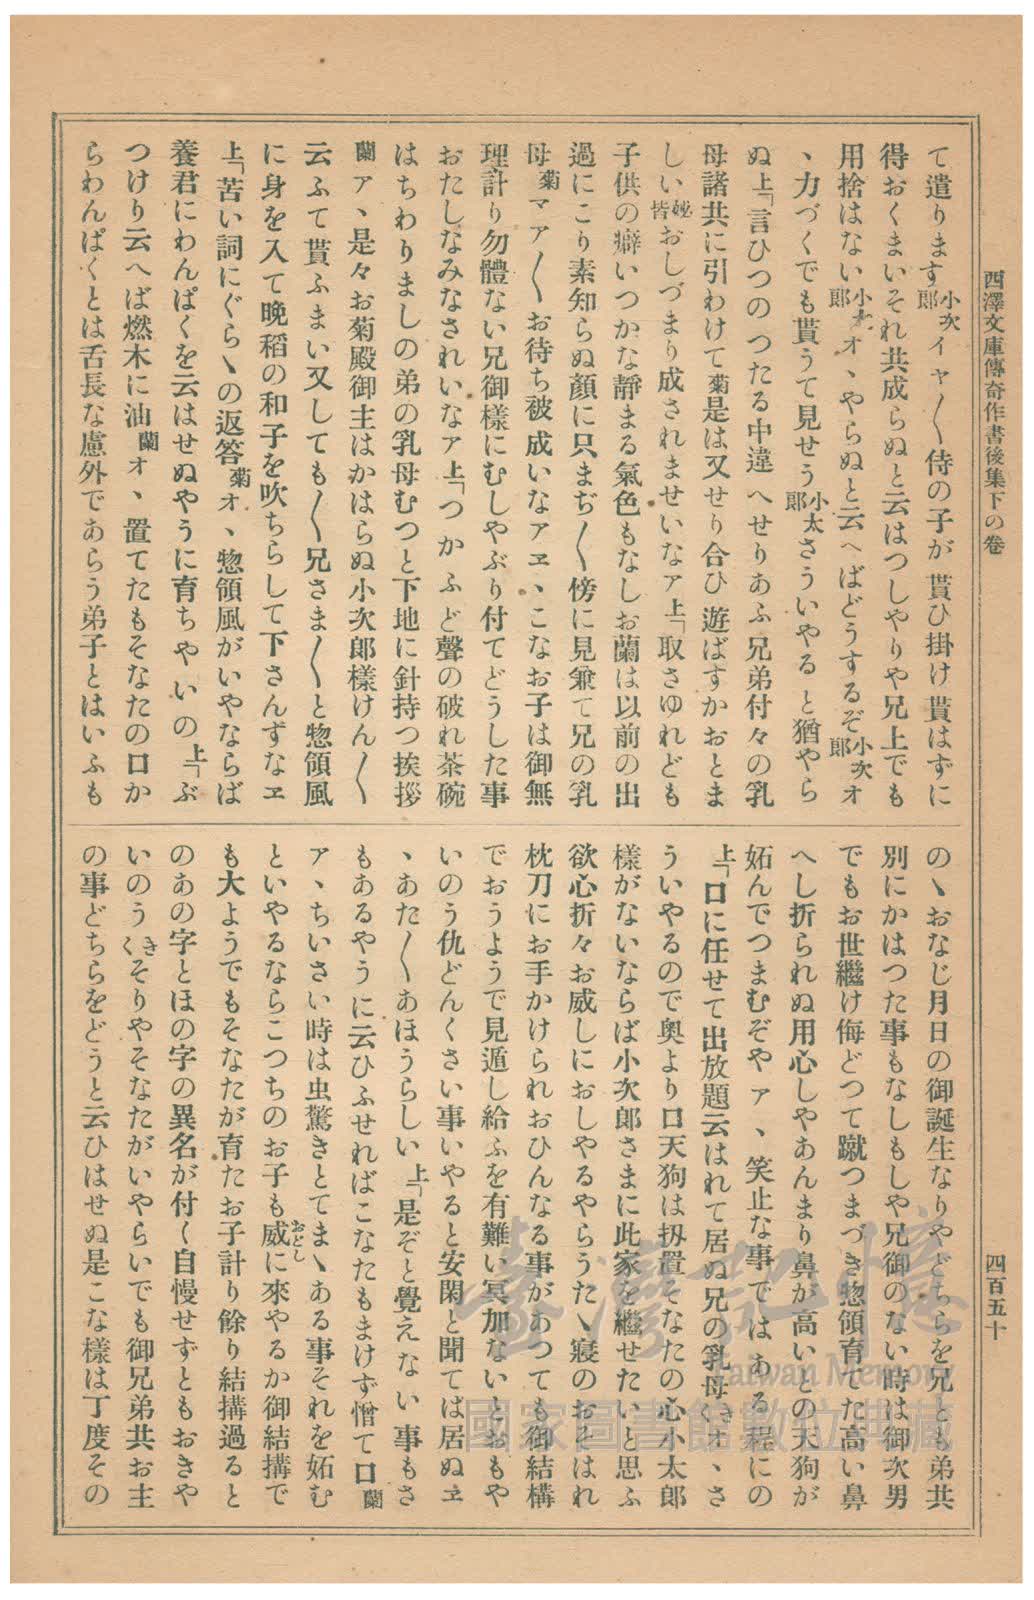 西澤文庫傳奇作書後集下の卷
四百五十
て遣ります小次郎イヤ〳〵侍の子が貰ひ掛け貰はずに
得おくまいそれ共成らぬと云はつしやりや兄上でも
用捨はない小太郎オヽやらぬと云へばどうするぞ小次郎オ
ヽ力づくでも貰うて見せう小太郎さういやると猶やら
ぬ上「言ひつのつたる中違へせりあふ兄弟付々の乳
母諸共に引わけて菊是は又せり合ひ遊ばすかおとま
しい皆おしづまり成されませいなア上「取さゆれども
子供の癖いつかな靜まる氣色もなしお蘭は以前の出
過にこり素知らぬ顔に只まぢ〳〵傍に見兼て兄の乳
母菊マア〳〵お待ち被成いなアヱヽこなお子は御無
理計り勿體ない兄御樣にむしやぶり付てどうした事
おたしなみなされいなア上「つかふど聲の破れ茶碗
はちわりましの弟の乳母むつと下地に針持つ挨拶
蘭アヽ是々お菊殿御主はかはらぬ小次郎樣けん〳〵
云ふて貰ふまい又しても〳〵兄さま〳〵と惣領風
に身を入て晩稻の和子を吹ちらして下さんずなヱ
上「苦い詞にぐらヽの返答菊オヽ惣領風がいやならば
養君にわんぱくを云はせぬやうに育ちやいの上「ぶ
つけり云へば燃木に油蘭オヽ置てたもそなたの口か
らわんぱくとは舌長な慮外であらう弟子とはいふも
のヽおなじ月日の御誕生なりやどちらを兄とも弟共
別にかはつた事もなしもしや兄御のない時は御次男
でもお世繼け侮どつて蹴つまづき惣領育てた高い鼻
へし折られぬ用心しやあんまり鼻が高いとの天狗が
妬んでつまむぞやアヽ笑止な事ではある程にの
上「口に任せて出放題云はれて居ぬ兄の乳母きくオヽさ
ういやるので奧より口天狗は扨置そなたの心小太郎
樣がないならば小次郎さまに此家を繼せたいと思ふ
欲心折々お威しにおしやるやらうたヽ寢のおそはれ
枕刀にお手かけられおひんなる事があつても御結構
でおうようで見遁し給ふを有難い冥加ないとおもや
いのう仇どんくさい事いやると安閑と聞ては居ぬヱ
ヽあた〳〵あほうらしい上「是ぞと覺えない事もさ
もあるやうに云ひふせればこなたもまけず憎て口蘭
アヽちいさい時は虫驚きとてまヽある事それを妬む
といやるならこつちのお子も威おどしに來やるか御結搆で
も大ようでもそなたが育たお子計り餘り結搆過ると
のあの字とほの字の異名が付く自慢せずともおきや
いのうきくそりやそなたがいやらいでも御兄弟共お主
の事どちらをどうと云ひはせぬ是こな樣は丁度その
臺灣記憶
Taiwan Memory
國家圖書館數位典藏